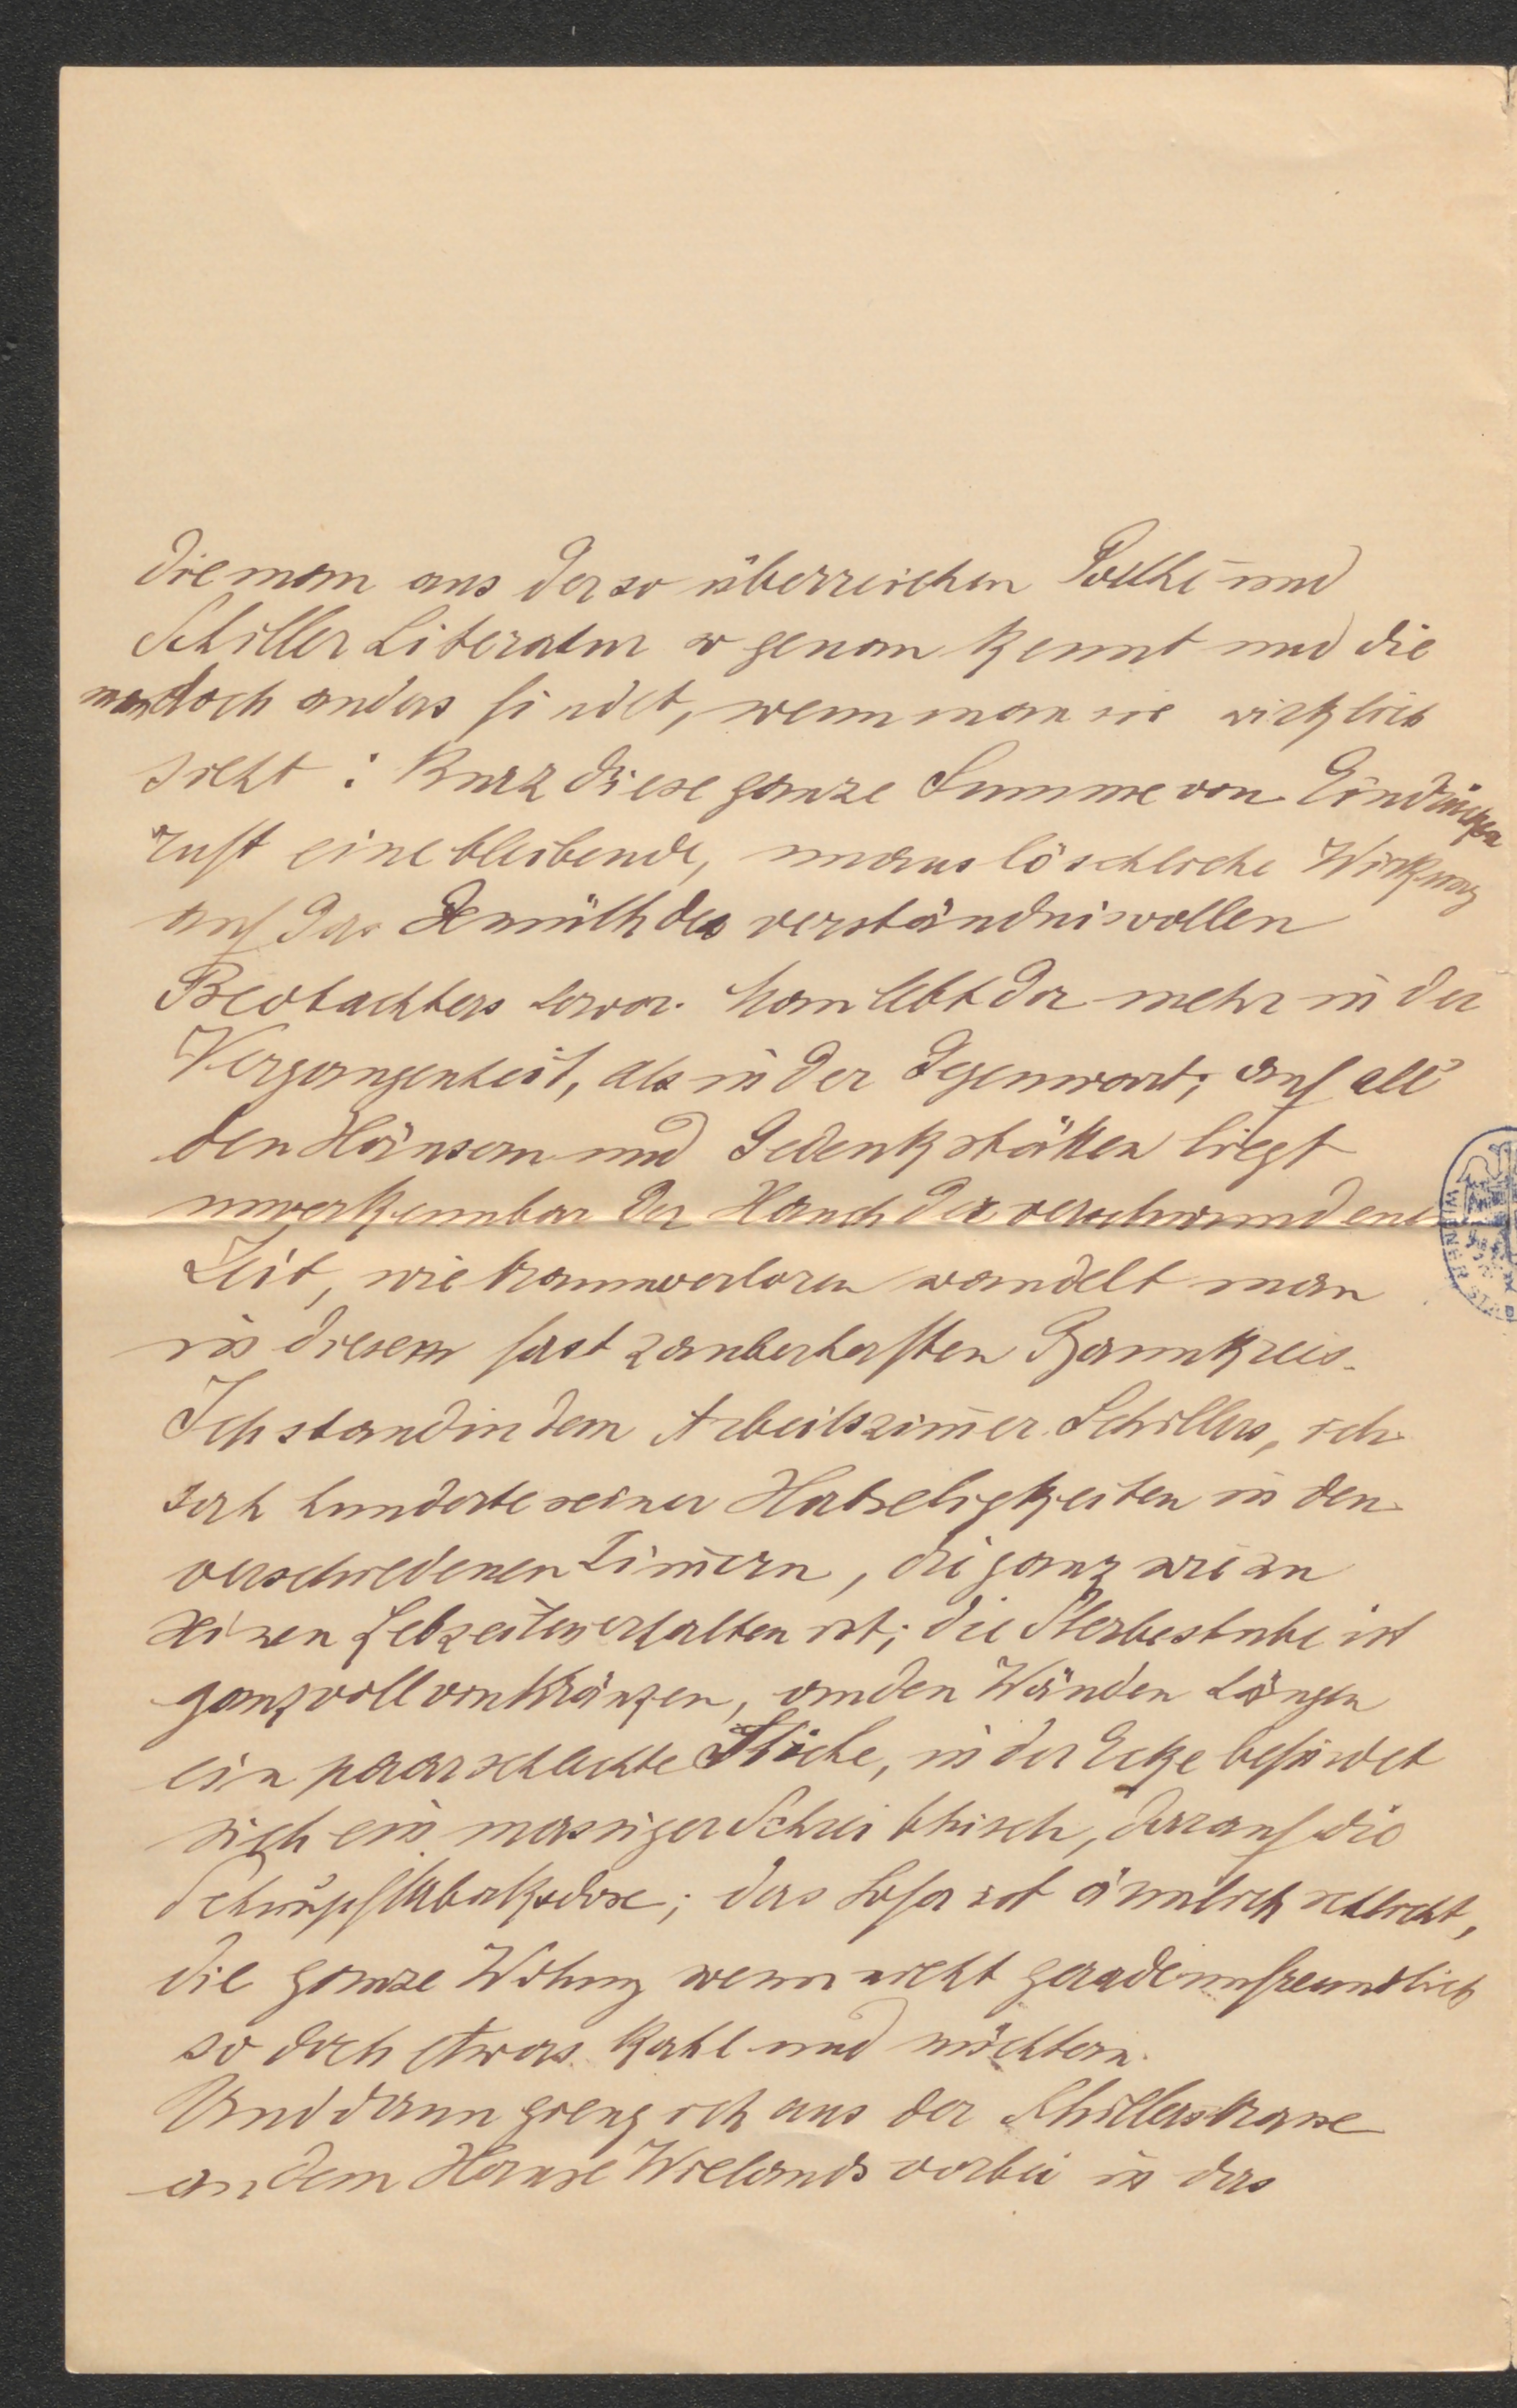 die man aus der so überreichen Goethe- und
Schiller Literatur so genau kennt und die
man doch anders findet, wenn man sie wirklich
sieht: Kurz diese ganze Summe von Eindrücken
ruft eine bleibende, unauslöschliche Wirkung
auf das Gemüth des verständnisvollen
Beobachters hervor. Man lebt da mehr in der
Vergangenheit, als in der Gegenwart; auf all'
den Häusern und Gedenkstätten liegt
unverkennbar der Hauch der verschwundenen
Zeit, wie traumverloren wandelt man
in diesem fast zauberhaften Bannkreis.
Ich stand in dem Arbeitszim̄er Schillers, ich
sah hunderte seiner Habseligkeiten in den
verschiedenen Zim̄ern, die ganz wie zu
seinen Lebzeiten erhalten ist; die Sterbestube ist
ganz voll von Kränzen, an den Wänden hängen
ein paar schlechte Stiche, in der Ecke befindet
sich ein massiger Schreibtisch, darauf die
Schnupftabaksdose; das Sofa ist ärmlich schlicht,
die ganze Wohnung wenn nicht gerade unfreundlich
so doch etwas kahl und nüchtern.
Und dann gieng ich aus der Schillerstrasse
an dem Hause Wielands vorbei in das
WIENER